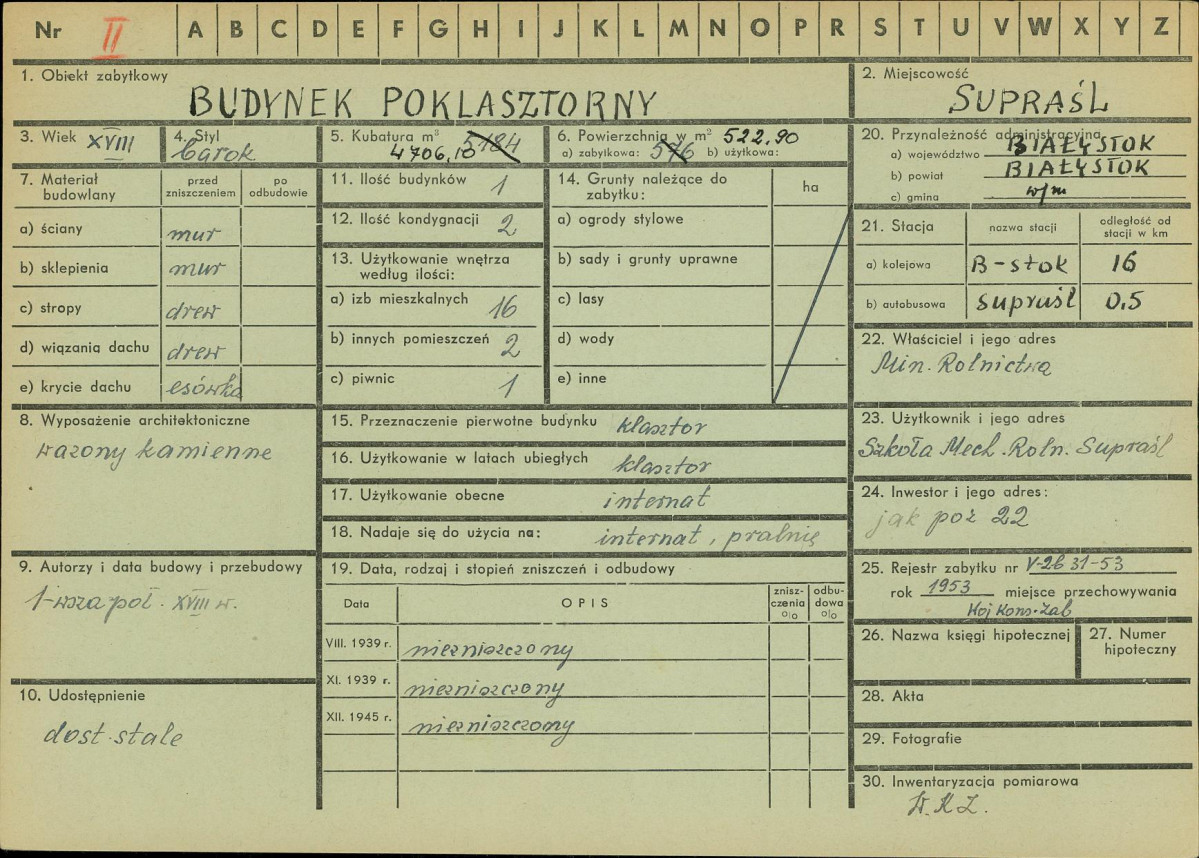 Nr II A B C D E F G H I J K L M N O P R S T U V W X Y Z
1. Obiekt zabytkowy
BUDYNEK POKLASZTORNY
2. Miejscowość
SUPRAŚL
3. Wiek XVIII
4. Styl
barok
5. Kubatura m³ 5184
4706,10
6. Powierzchnia w m² 522,90
a) zabytkowa: 576 b) użytkowa:
20. Przynależność administracyjna
a) województwo BIAŁYSTOK
b) powiat BIAŁYSTOK
c) gmina w/m
7. Materiał budowlany
przed zniszczeniem
po odbudowie
a) ściany mur
b) sklepienia mur
c) stropy drew
d) wiązania dachu drew
e) krycie dachu esówka
11. Ilość budynków 1
12. Ilość kondygnacji 2
13. Użytkowanie wnętrza
według ilości:
a) izb mieszkalnych 16
b) innych pomieszczeń 2
c) piwnic 1
14. Grunty należące do
zabytku:
ha
a) ogrody stylowe
b) sady i grunty uprawne
c) lasy
d) wody
e) inne
21. Stacja
nazwa stacji
odległość od
stacji w km
a) kolejowa B-stok 16
b) autobusowa Supraśl 0.5
22. Właściciel i jego adres
Min. Rolnictwa
8. Wyposażenie architektoniczne
wazony kamienne
15. Przeznaczenie pierwotne budynku klasztor
16. Użytkowanie w latach ubiegłych klasztor
17. Użytkowanie obecne internat
18. Nadaje się do użycia na: internat, pralnię
23. Użytkownik i jego adres
Szkoła Mech. Roln. Supraśl
24. Inwestor i jego adres:
jak poz 22
9. Autorzy i data budowy i przebudowy
1-wsza poł. XVIII w.
10. Udostępnienie
dost. stale
19. Data, rodzaj i stopień zniszczeń i odbudowy
Data
OPIS
znisz-
czenia
%
odbu-
dowa
%
VIII. 1939 r. niezniszczony
XI. 1939 r. niezniszczony
XII. 1945 r. niezniszczony
25. Rejestr zabytku nr V-2b 31-53
rok 1953 miejsce przechowywania
Woj Kons. Zab
26. Nazwa księgi hipotecznej
27. Numer
hipoteczny
28. Akta
29. Fotografie
30. Inwentaryzacja pomiarowa
W. K. Z.